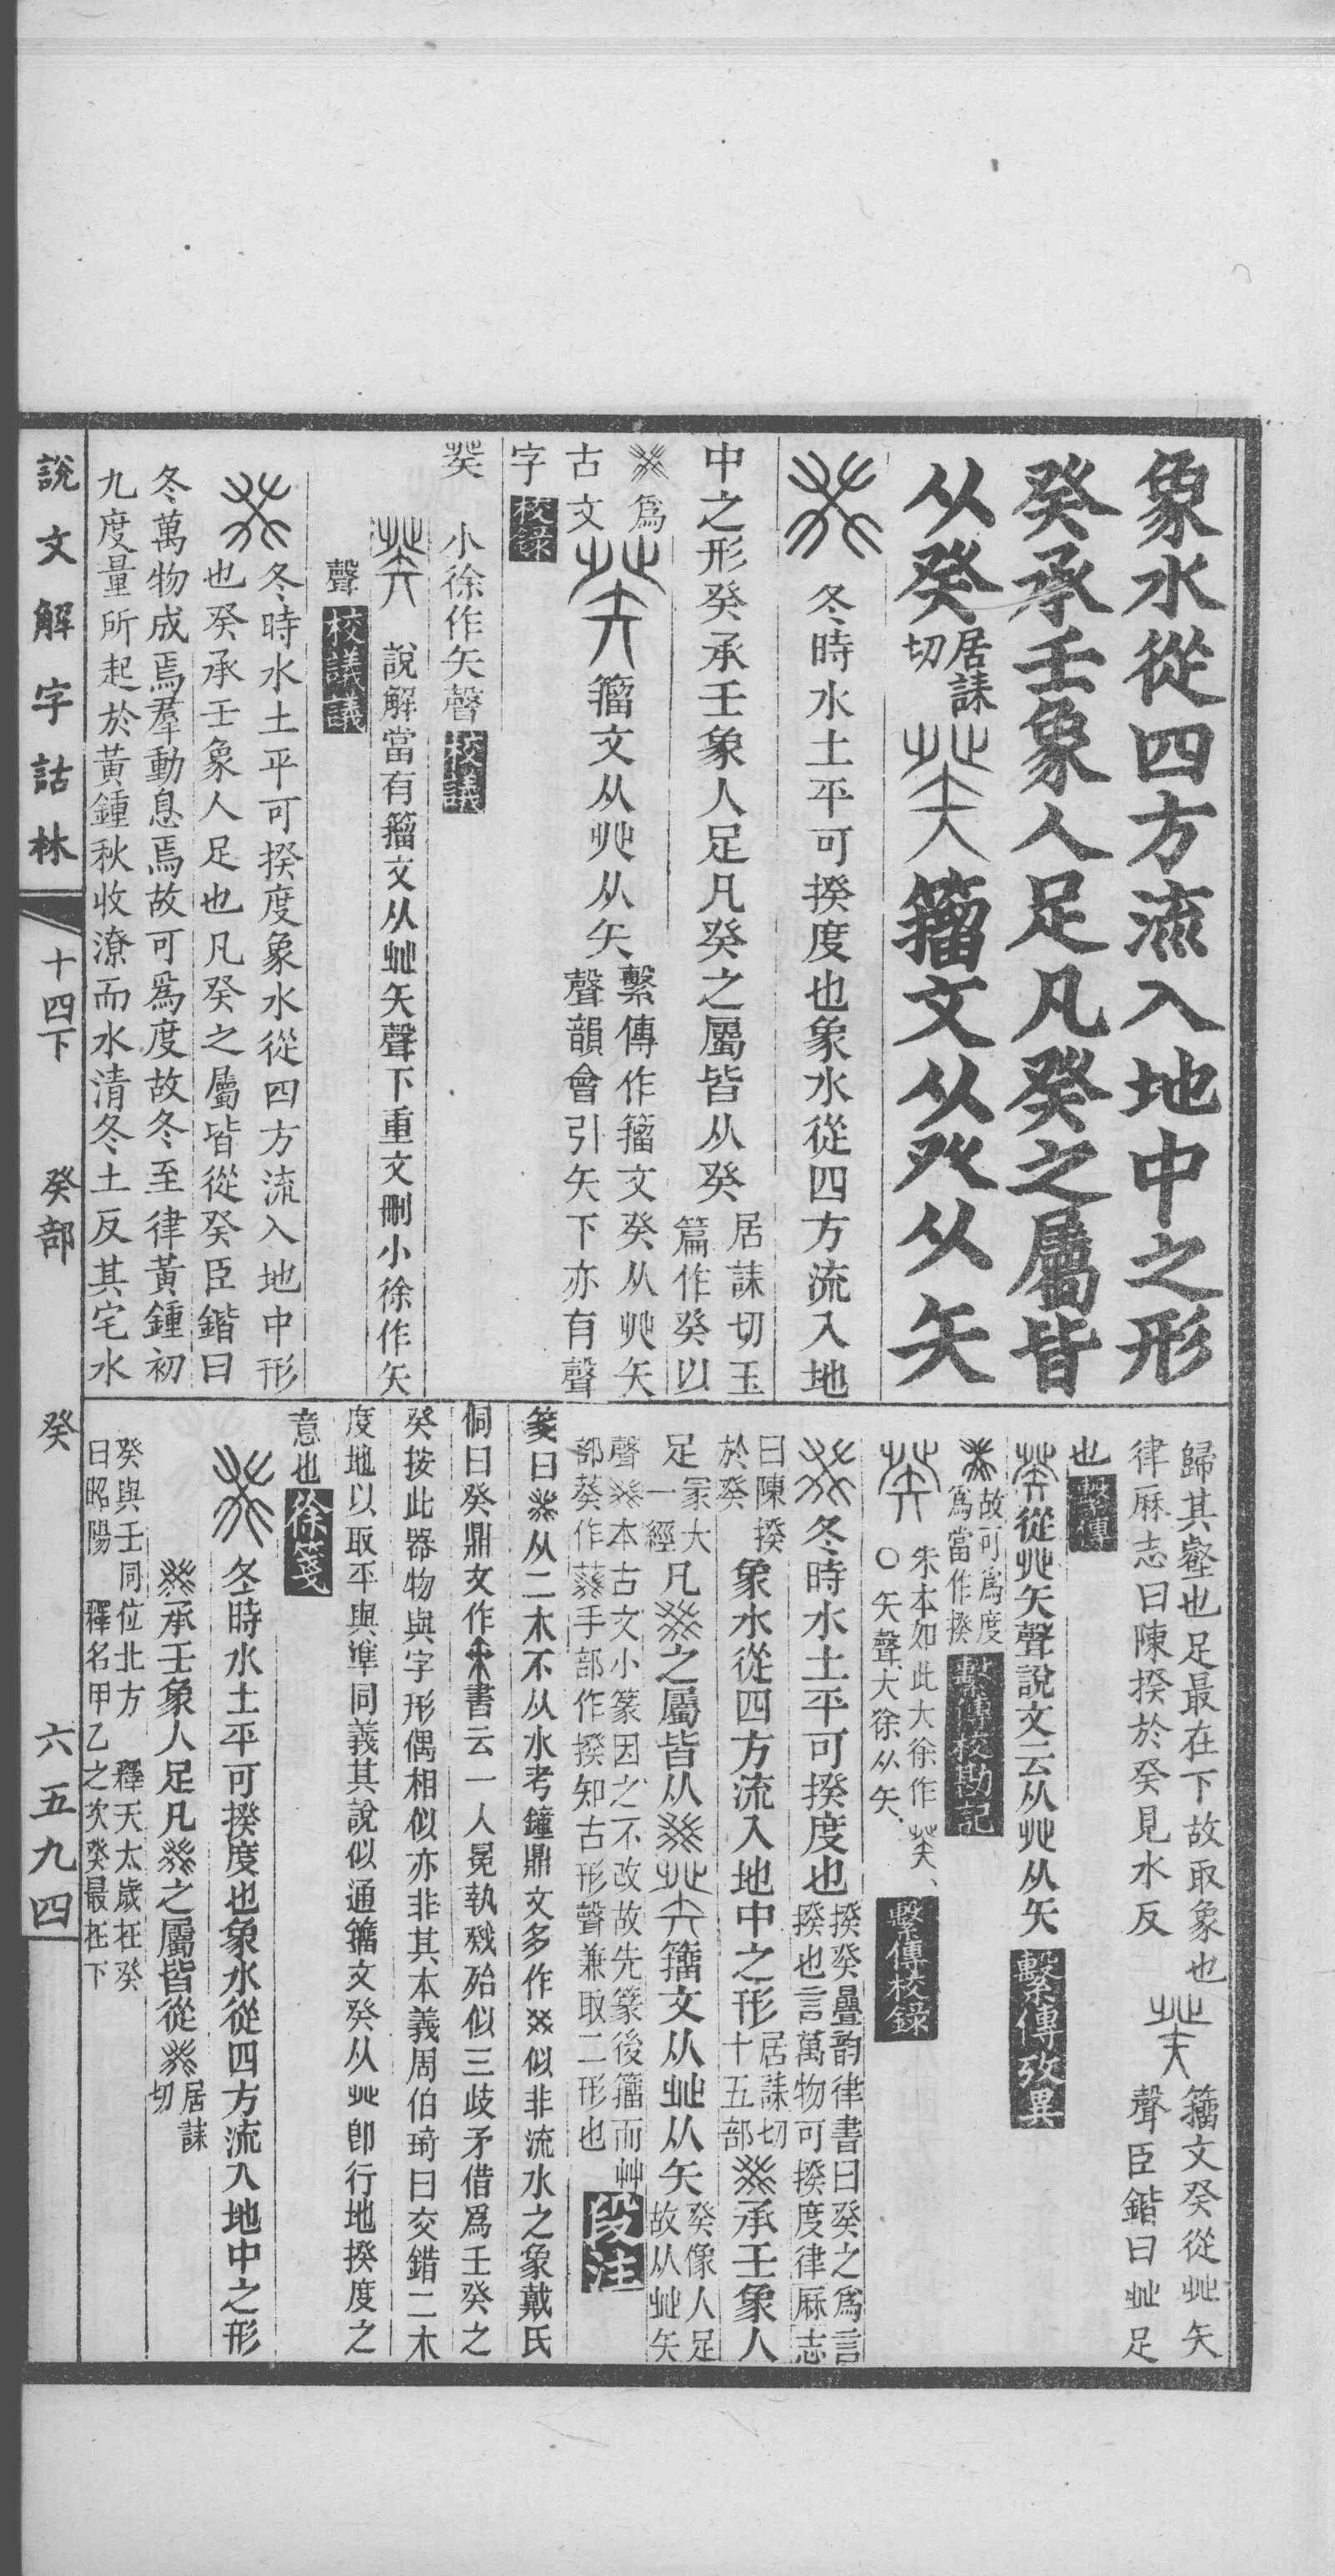 象水從四方流入地中之形
癸承壬象人足凡癸之屬皆
从癸居誄切籀文从癶从矢
冬時水土平可揆度也象水從四方流入地
中之形癸承壬象人足凡癸之屬皆从癸居誄切玉篇作癸以
爲古文籀文从癶从矢繫傳作籀文癸从癶矢聲韻會引矢下亦有聲
字校録
小徐作矢聲校議
說解當有籀文从癶矢聲下重文刪小徐作矢
聲校議議
冬時水土平可揆度象水從四方流入地中形
也癸承壬象人足也凡癸之屬皆從癸臣鍇曰
冬萬物成焉羣動息焉故可爲度故冬至律黃鍾初
九度量所起於黃鍾秋收潦而水清冬土反其宅水
歸其壑也足最在下故取象也籀文癸從癶矢
律厤志曰陳揆於癸見水反聲臣鍇曰癶足
也繫傳
從癶矢聲說文云从癶从矢繫傳攷異
故可爲度爲當作揆繫傳校勘記
朱本如此大徐作、
○矢聲大徐从矢、繫傳校録
冬時水土平可揆度也揆癸疊韵律書曰癸之爲言揆也言萬物可揆度律厤志
曰陳揆於癸象水從四方流入地中之形居誄切十五部承壬象人
足冡大一經凡之屬皆从籀文从癶从矢癸像人足故从癶矢
聲本古文小篆因之不改故先篆後籀而艸部葵作手部作揆知古形聲兼取二形也段注
箋曰从二木不从水考鐘鼎文多作似非流水之象戴氏
侗曰癸鼎文作書云一人冕執戣殆似三歧矛借爲壬癸之
癸按此器物與字形偶相似亦非其本義周伯琦曰交錯二木
度地以取平與準同義其說似通籀文癸从癶卽行地揆度之
意也徐箋
冬時水土平可揆度也象水從四方流入地中之形
承壬象人足凡之屬皆從居誄切
癸與壬同位北方釋天太歲在癸
曰昭陽釋名甲乙之次癸最在下
說文解字詁林
十四下
癸部
癸
六五九四